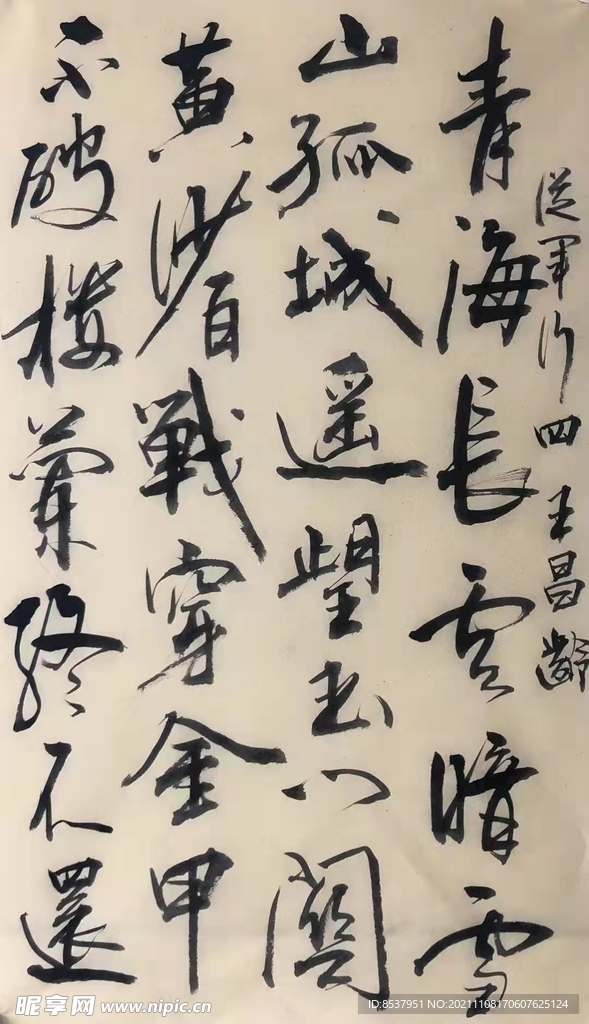 從軍行四 王昌齡
青海長雲暗雪
山孤城遥望玉門關
黃沙百戰穿金甲
不破樓蘭終不還
昵享网 www.nipic.cn
ID:8537951 NO:20211108170607625124